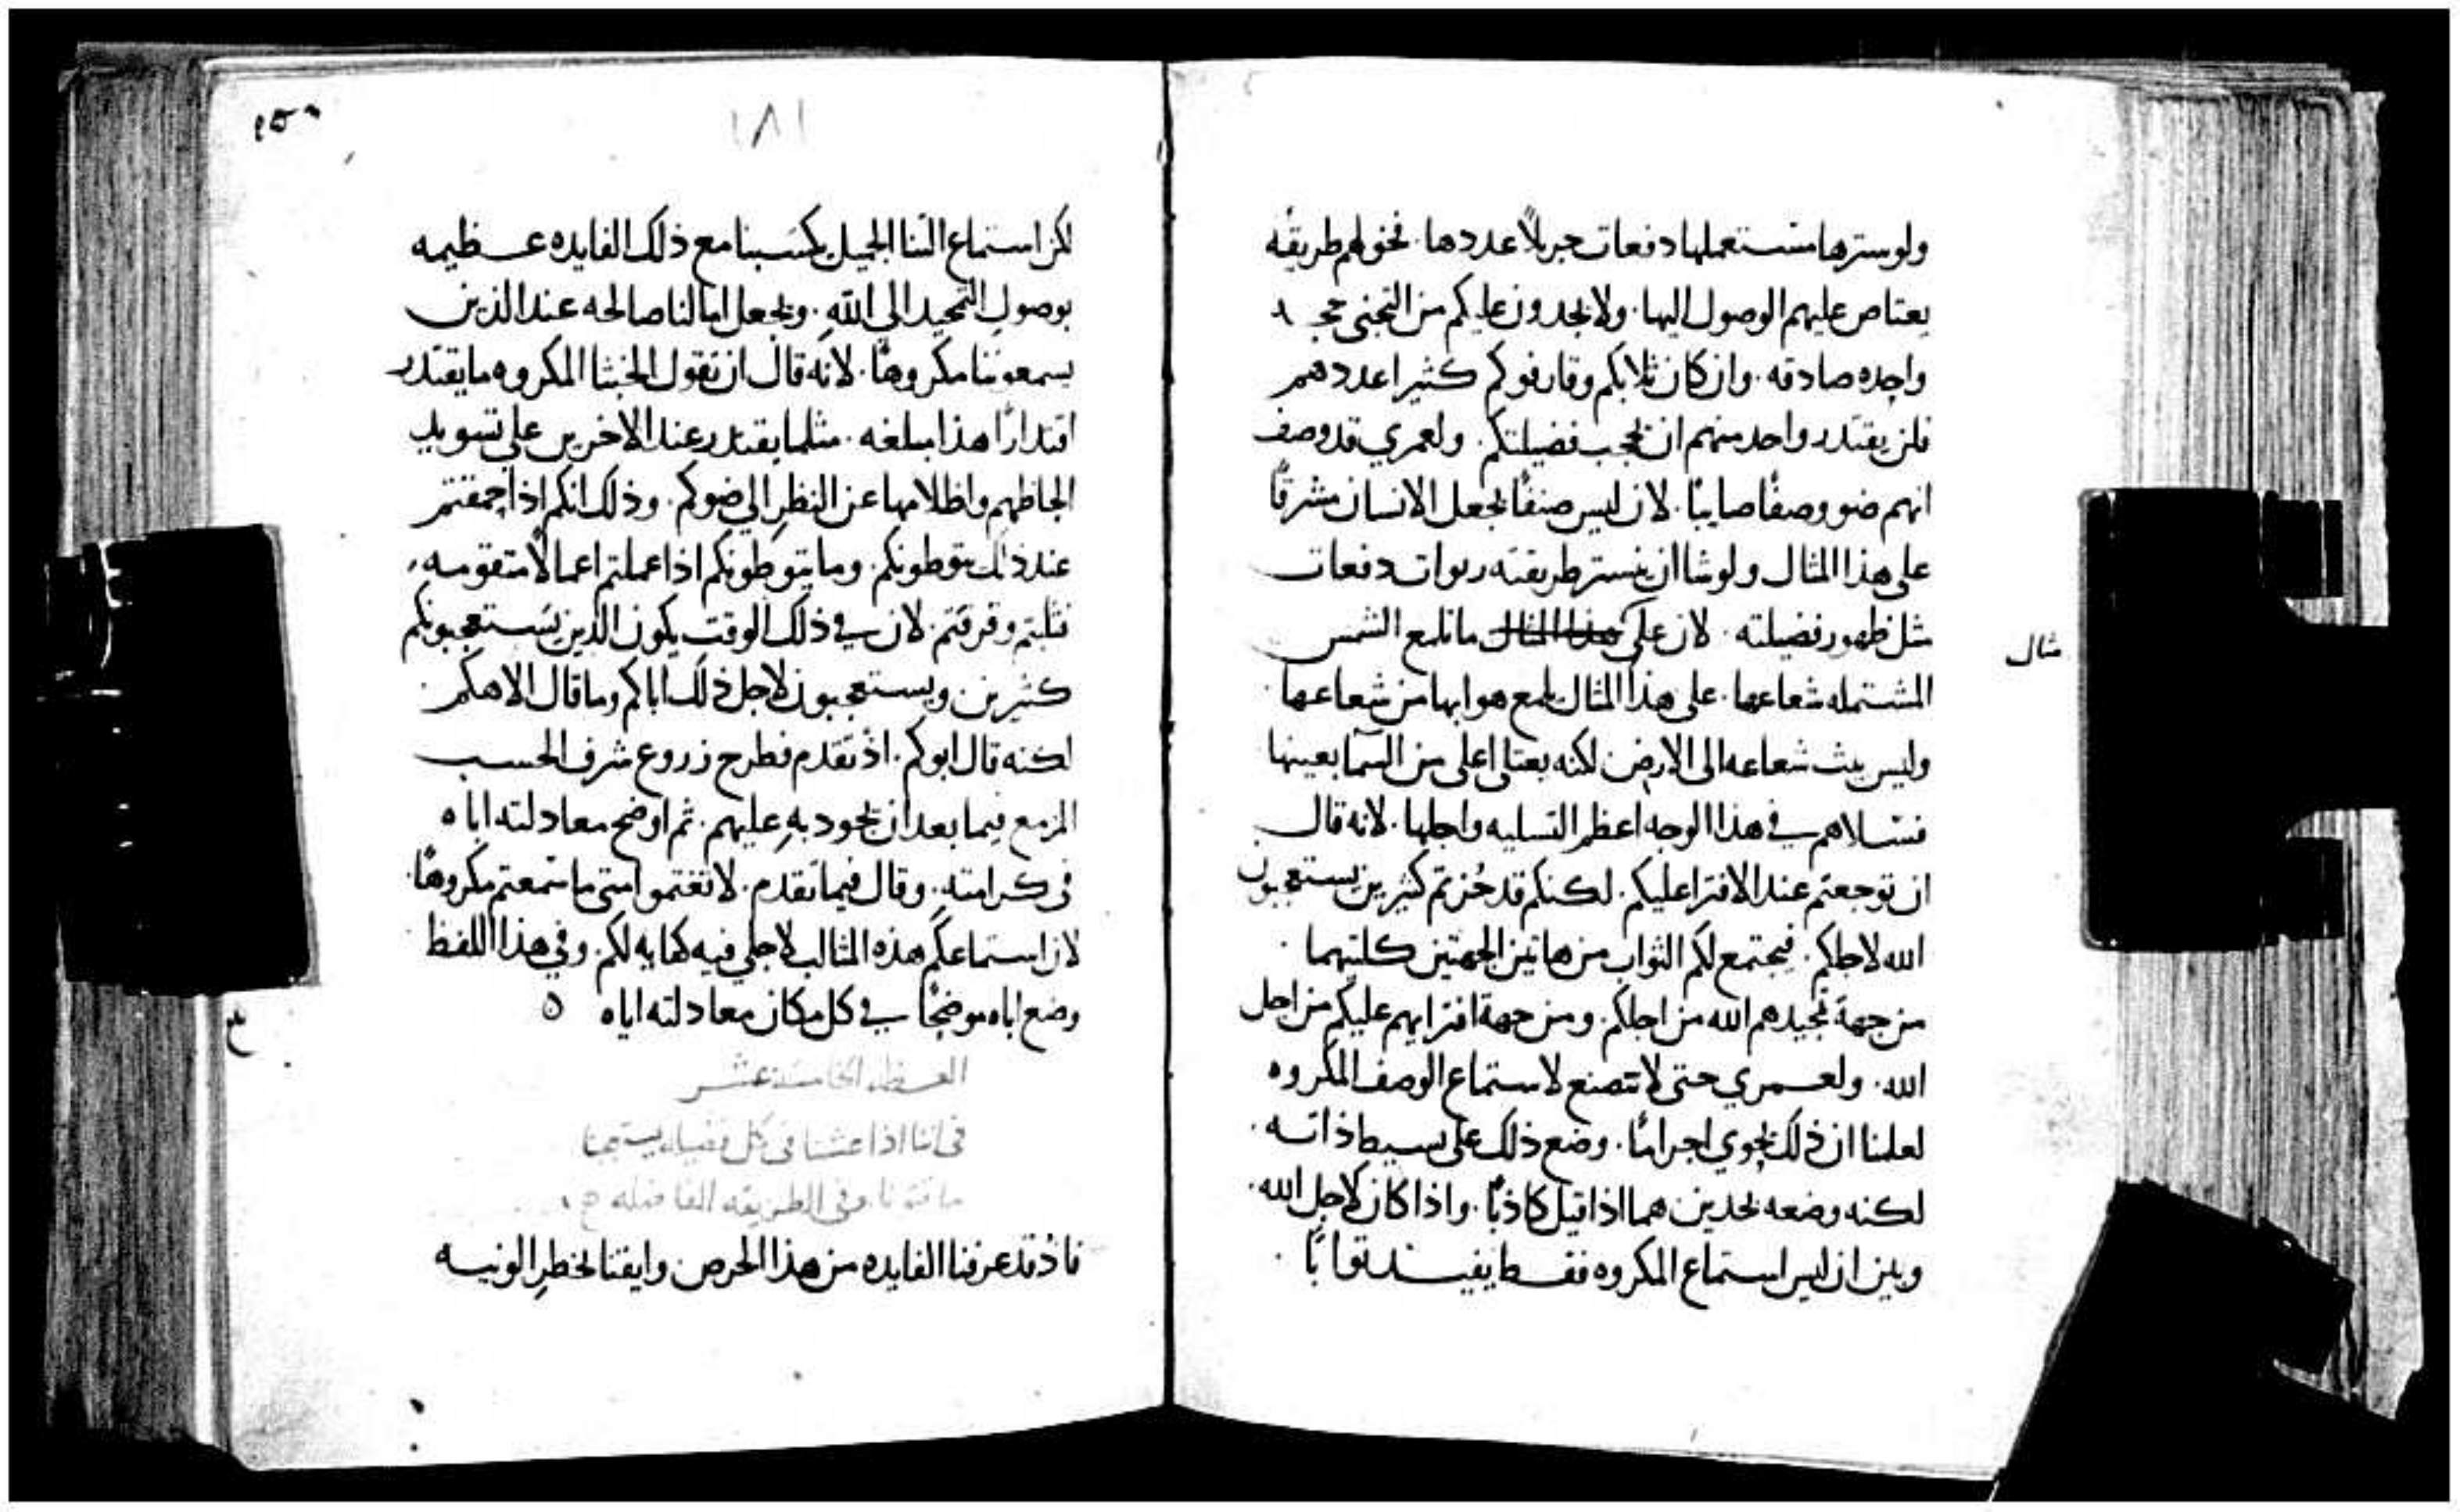 ولو سترها مستعملها دفعات جزيلاً عددها. نحوهم طريقه
يعتاص عليهم الوصول اليها. ولا يجدون عليكم من التجني حجه
واحده صادقه. وان كان ثلابكم وقارفوكم كثيرا عددهم
فلن يقتدر واحد منهم ان يحجب فضيلتكم. ولعمري قد وصف
انهم ضوو وصفًا صايبًا. لان ليس صنفًا يجعل الانسان مشرقًا
على هذا المثال ولو شا ان يستر طريقته ربوات دفعات
مثل ظهور فضيلته. لان على ما تلمع الشمس
مثال
المشتمله شعاعها. على هذا المثال يلمع هو ابها من شعاعها
وليس يبث شعاعه الى الارض لكنه يعتلي اعلى من السما بعينها
فسلاهم في هذا الوجه اعظم التسليه واجلها. لانه قال
ان توجعتم عند الافترا عليكم. لكنكم قد حزتم كثيرين يستعجبون
الله لاجلكم. فيجتمع لكم الثواب من هاتين الجهتين كلتيهما
من جهة تمجيدهم الله من اجلكم. ومن جهة افترايهم عليكم من اجل
الله. ولعمري حتى لا نتصنع لاستماع الوصف المكروه
لعلنا ان ذلك يحوي اجرًا لنا. وضع ذلك على بسيط ذاته.
لكنه وضعه بحدين هما اذا قيل كاذبًا. واذا كان لاجل الله.
وبين ان ليس استماع المكروه فقط يفيد ثوابًا
١٨١
لكن استماع الثنا الجميل يكسبنا مع ذلك الفايده عظيمه
بوصول التمجيد الى الله. ويجعل امالنا صالحه عند الذين
يسمعوننا مكروهًا. لانه قال ان تقول الخبثا المكروه ما يقتدر
اقتدارًا هذا مبلغه. مثلما يقتدر عند الاخرين على تسويد
الحاظهم واظلامها عن النظر الى ضوكم. وذلك انكم اذا حمقتم
عند ذلك يتوطونكم. وما يتوطونكم اذا عملتم اعمالًا متقومه
ثلبتم وقرفتم. لان في ذلك الوقت يكون الذين يستعجبونكم
كثيرين ويستعجبون لاجل ذلك اباكم وما قال الاهكم
لكنه قال ابوكم. اذ تقدم فطرح زروع شرف الحسب
المزمع فيما بعد ان يجود به عليهم. ثم اوضح معادلته اباه
في كرامته. وقال فيما تقدم. لا تغتموا متى ما سمعتم مكروهًا.
لان استماعكم هذه المثالب لاجلي فيه كفايه لكم. وفي هذا اللفظ
وضع اباه موضحًا في كل مكان معادلته اباه
العظه الخامسة عشر
في اننا اذا عشنا في كل فضيله
في الطريقه الفاضله
فاذ قد عرفنا الفايده من هذا الحرص وايقنا بخطر الونيه